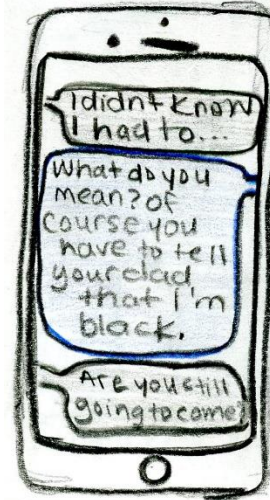 I didnt know
I had to...
What do you
mean? of
course you
have to tell
your dad
that I'm
black.
Are you still
going to come?